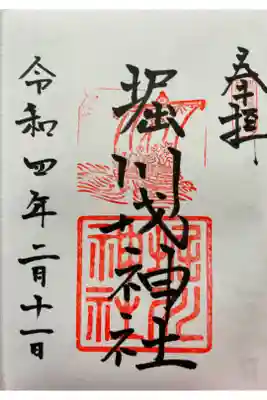 奉拝
堀川戎神社
令和四年二月十一日